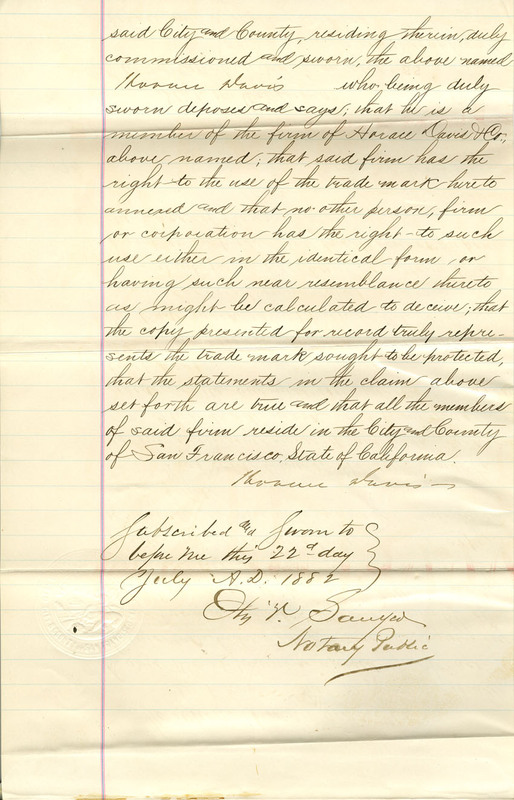 said City and County, residing therein, duly
commissioned and sworn, the above named
Horace Davis who being duly
sworn deposes and says; that he is a
member of the firm of Horace Davis & Co.,
above named; that said firm has the
right to the use of the trade mark hereto
annexed and that no other person, firm
or corporation has the right to such
use either in the identical form or
having such near resemblance thereto
as might be calculated to deceive; that
the copy presented for record truly repre-
sents the trade mark sought to be protected,
that the statements in the claim above
set forth are true and that all the members
of said firm reside in the City and County
of San Francisco, State of California.
Horace Davis
Subscribed and Sworn to
before me this 22d day
July A.D. 1882
Otis V. Sawyer
Notary Public